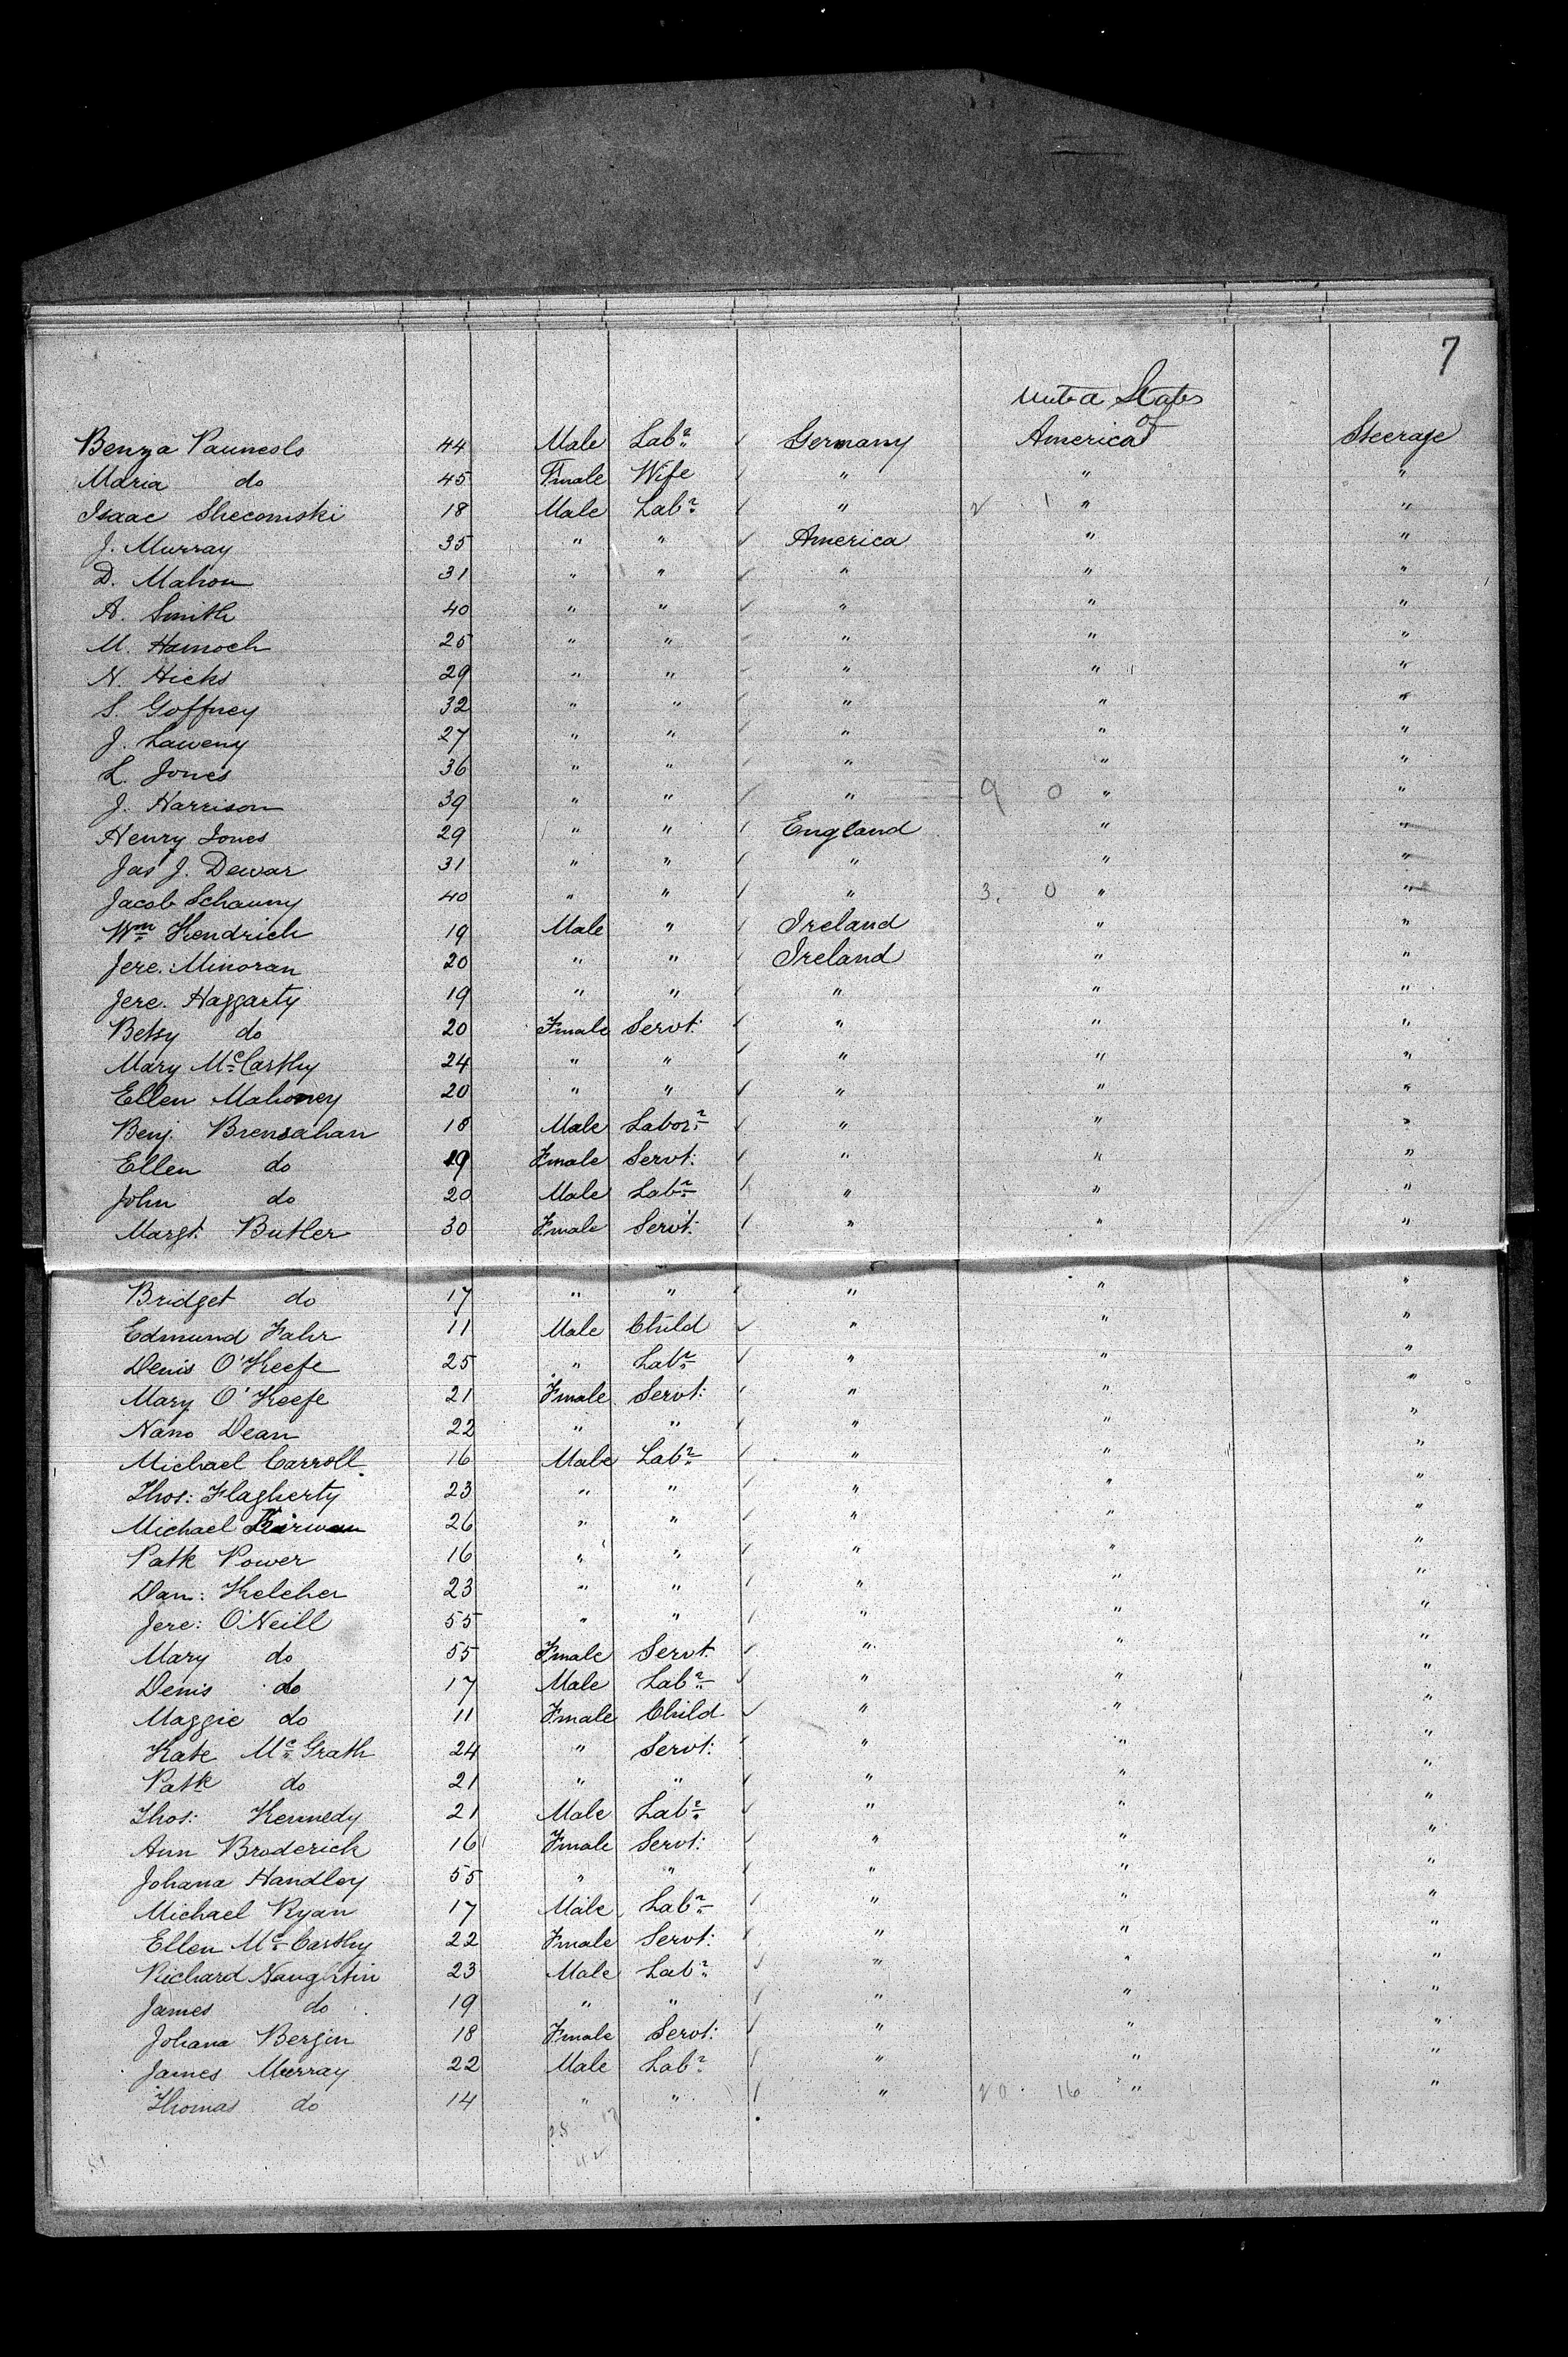 7
United States
of
Benza Paunesls 44 Male Labr Germany America Steerage
Maria do 45 Fmale Wife " " "
Isaac Shecomski 18 Male Labr " 2 1 " "
J. Murray 35 " " America " "
D. Mahon 31 " " " " "
A. Smith 40 " " " " "
M. Hamoch 25 " " " " "
N. Hicks 29 " " " " "
S. Goffney 32 " " " " "
J. Laweny 27 " " " " "
L. Jones 36 " " " " "
J. Harrison 39 " " " 9 0 " "
Henry Jones 29 " " England " "
Jas J. Dewar 31 " " " " "
Jacob Schauny 40 " " " 3. 0 " "
Wm Kendrich 19 Male " Ireland " "
Jere. Minoran 20 " " Ireland " "
Jere. Haggarty 19 " " " " "
Betsy do 20 Fmale Servt: " " "
Mary McCarthy 24 " " " " "
Ellen Mahoney 20 " " " " "
Benj. Brensahan 18 Male Labor " " "
Ellen do 19 Fmale Servt: " " "
John do 20 Male Labr " " "
Margt. Butler 30 Fmale Servt: " " "
Bridget do 17 " " " " "
Edmund Fahr 11 Male Child " " "
Denis O'Keefe 25 " Labr " " "
Mary O'Keefe 21 Fmale Servt: " " "
Nano Dean 22 " " " " "
Michael Carroll 16 Male Labr " " "
Thos: Flagherty 23 " " " " "
Michael Kirwan 26 " " " " "
Patk Power 16 " " " " "
Dan: Keleher 23 " " " " "
Jere: O'Neill 55 " " " " "
Mary do 55 Fmale Servt. " " "
Denis do 17 Male Labr " " "
Maggie do 11 Fmale Child " " "
Kate McGrath 24 " Servt: " " "
Patk do 21 " " " " "
Thos: Kennedy 21 Male Labr " " "
Ann Broderick 16 Fmale Servt: " " "
Johana Handley 55 " " " " "
Michael Ryan 17 Male Labr " " "
Ellen McCarthy 22 Fmale Servt: " " "
Richard Naughtin 23 Male Labr " " "
James do 19 " " " " "
Johana Bergin 18 Fmale Servt: " " "
James Murray 22 Male Labr " " "
Thomas do 14 " " " 20 16 " "